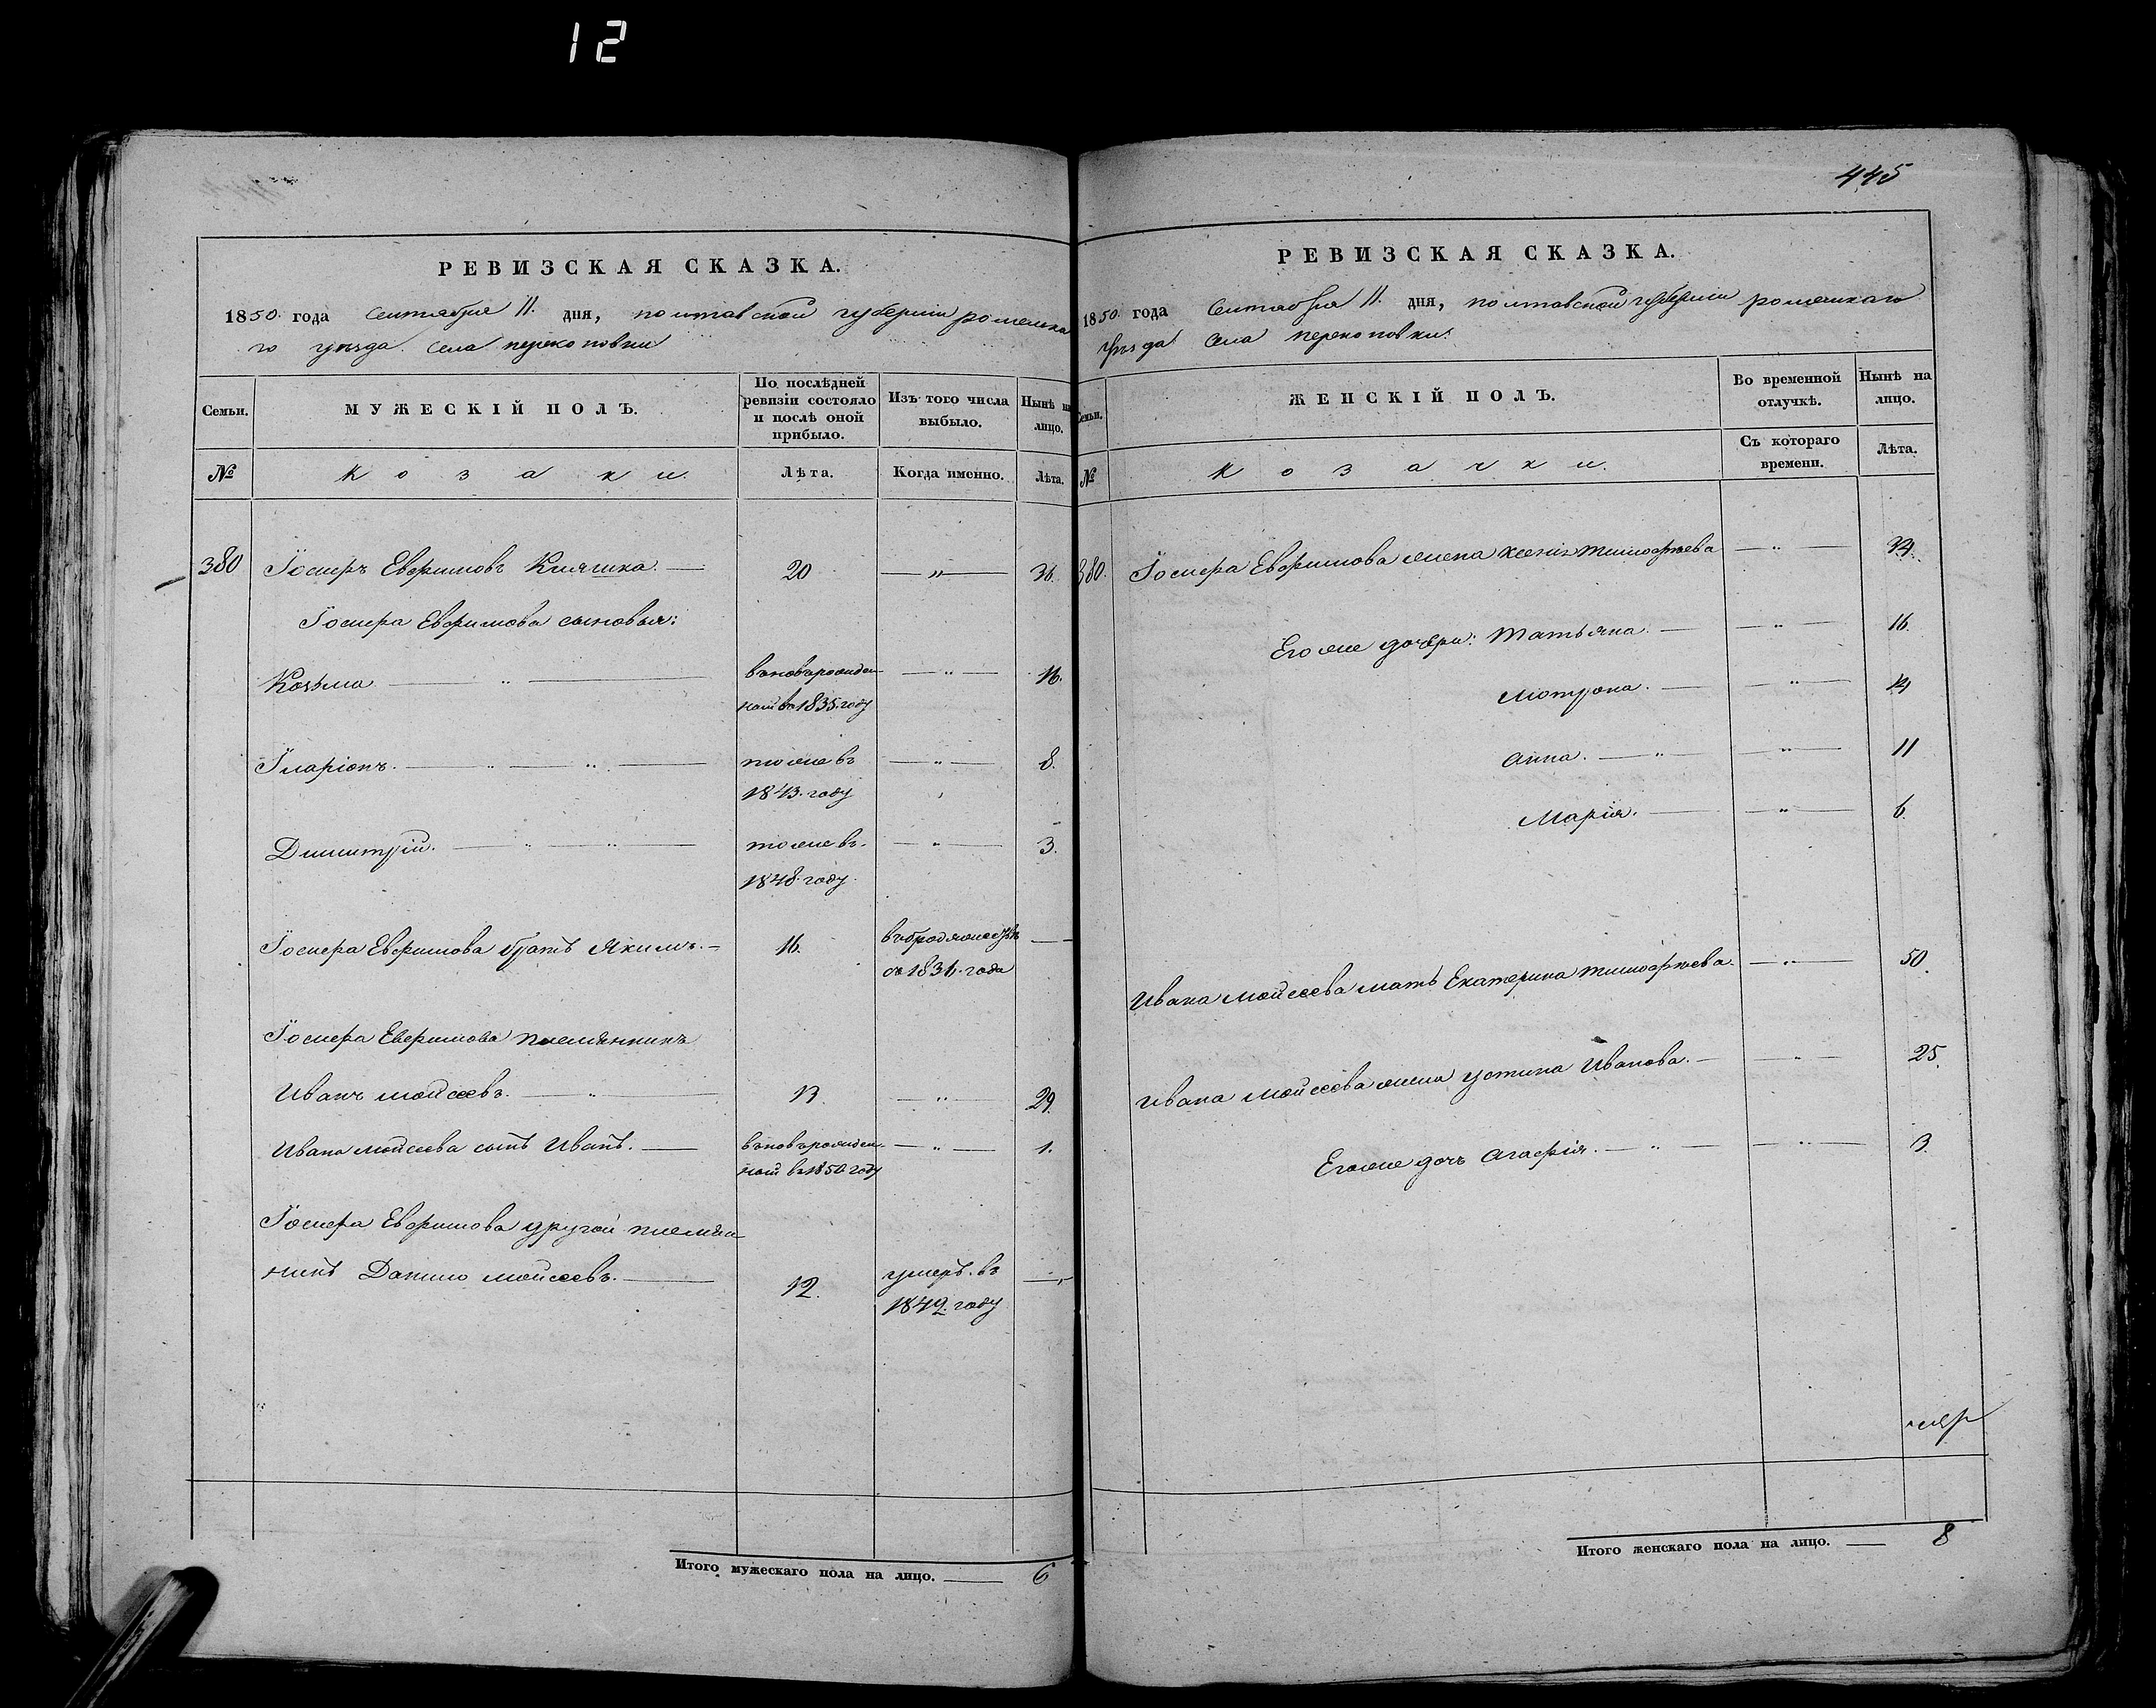 12
РЕВИЗСКАЯ СКАЗКА.
1850. года Сентября 11. дня, полтавской губерніи роменска
го уезда. села перекоповки
Семьи.
МУЖЕСКІЙ ПОЛЪ.
По послѣдней ревизіи состояло и послѣ оной прибыло.
Изъ того числа выбыло.
Нынѣ на лицо.
№
Козаки.
Лѣта.
Когда именно.
Лѣта.
380 Іосифъ Евфимовъ Кияшка. — 20 — „ — 36.
Іосифа Евфимова сыновья:
Козьма — „ — вновь рожден — „ — 16.
ной въ 1835. году
Іларіонъ. — „ — „ — тоже въ — „ — 8.
1843. году
Димитрій. — „ — „ — тоже въ. — „ — 3.
1848. году.
Іосифа Евфимова братъ Якимъ. — 16. в бродяжествѣ —
съ 1831. года
Іосифа Евфимова племянникъ
Иванъ Мойсеевъ. — „ — 13. — „ — 29.
Ивана Мойсеева сынъ Иванъ. — вновь рожден. — „ — 1.
ной въ 1850. году
Іосифа Евфимова другой племян-
никъ Данило Мойсеевъ. — 12. умеръ. въ —
1849. году
Итого мужескаго пола на лицо. — 6
445
РЕВИЗСКАЯ СКАЗКА.
1850. года Сентября 11. дня, полтавской губерніи роменскаго
уезда села перекоповки.
Семьи.
ЖЕНСКІЙ ПОЛЪ.
Во временной отлучкѣ.
Нынѣ на лицо.
№
Козачки.
Съ котораго времени.
Лѣта.
380. Іосифа Евфимова жена Ксенія Тимофѣева — „ — 34.
Его же дочери: Татьяна. — — „ — 16.
Мотрона. — — „ — 14
Анна. — „ — „ — 11
Марія. — — „ — 6.
Ивана Мойсеева мать Екатерина Тимофѣева. — „ — 50.
Ивана Мойсеева жена Устина Иванова. — — „ — 25.
Его же дочь Агафія. — „ — — „ — 3.
Итого женскаго пола на лицо. — 8